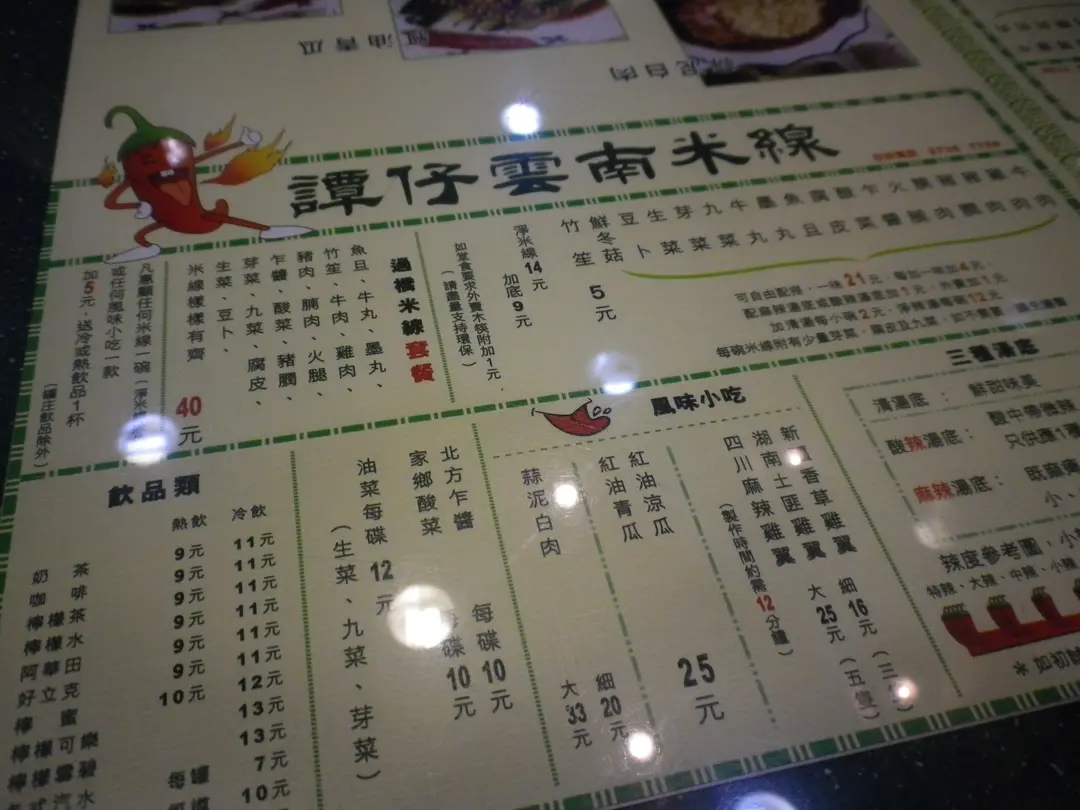 紅油青瓜
蒜泥白肉
譚仔雲南米線
牛肉
雞肉
豬肉
豬膶
腩肉
火腿
乍醬
酸菜
腐皮
魚旦
墨丸
牛丸
九菜
芽菜
生菜
豆卜
鮮冬菇
竹笙
5元
可自由配搭，一味21元，每加一味加4元，
配麻辣湯底或酸辣湯底加1元，外賣加1元
加清湯每小碗2元，淨辣湯每碗12元
每碗米線附有少量芽菜，腐皮及九菜，如不需要
淨米線14元
加底9元
如堂食要求外賣木筷附加1元
（請盡量支持環保）
過橋米線套餐
魚旦、牛丸、墨丸、
竹笙、牛肉、雞肉、
豬肉、腩肉、火腿、
乍醬、酸菜、豬膶、
芽菜、九菜、腐皮、
生菜、豆卜、
米線樣樣有齊
40元
凡惠顧任何米線一碗（淨米
或任何風味小吃一款
加5元，送冷或熱飲品1杯
（罐庄飲品除外）
三種湯底
清湯底：鮮甜味美
酸辣湯底：酸中帶微辣
只供應1種
麻辣湯底：既麻
小、
辣度參考圖，小
特辣、大辣、中辣、小辣
＊如初
風味小吃
新 香草雞翼
湖南土匪雞翼
四川麻辣雞翼
（製作時間約需12分鐘）
細16元
大25元（五隻）
紅油涼瓜
紅油青瓜
25元
蒜泥白肉
細20元
大33元
北方乍醬
每碟10元
家鄉酸菜
每碟10元
油菜每碟12元
（生菜、九菜、芽菜）
飲品類
熱飲 冷飲
奶茶 9元 11元
咖啡 9元 11元
檸檬茶 9元 11元
檸檬水 9元 11元
阿華田 9元 11元
好立克 9元 11元
檸蜜 10元 12元
檸檬可樂 13元
檸檬 13元
汽水 每罐 7元
10元